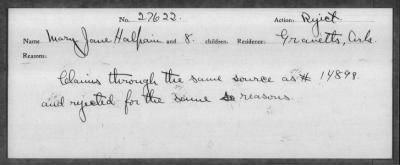 No. 27622. Action: Reject
Name Mary Jane Halpain and 8. children. Residence: Gravetts, Ark.
Reasons:
Claims through the same source as # 14898
and rejected for the same reasons.